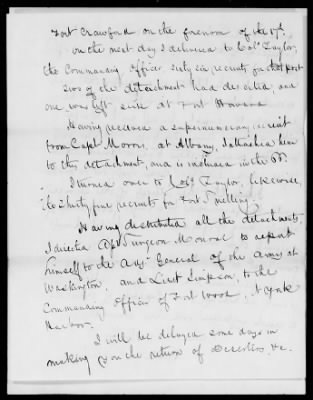 Fort Crawford on the forenoon of the 17th,
on the next day I delivered to Col. Taylor,
the Commanding Officer sixty six recruits for that post
two of the detachment had deserted, and
one was left sick at Fort Howard
Having received a supernumerary recruit
from Capt. Morris, at Albany, I attached him
to this detachment, and is included in the 68.
I turned over to Col. Taylor, likewise,
the thirty five recruits for Fort Snelling.
Having distributed all the detachments,
I directed Surgeon to report
himself to the Adj. General of the Army at
Washington, and Lieut Simpson, to the
Commanding Officer of Fort Wood, N York
Harbor.
I will be delayed some days in
making out the return of Deserters, &c.